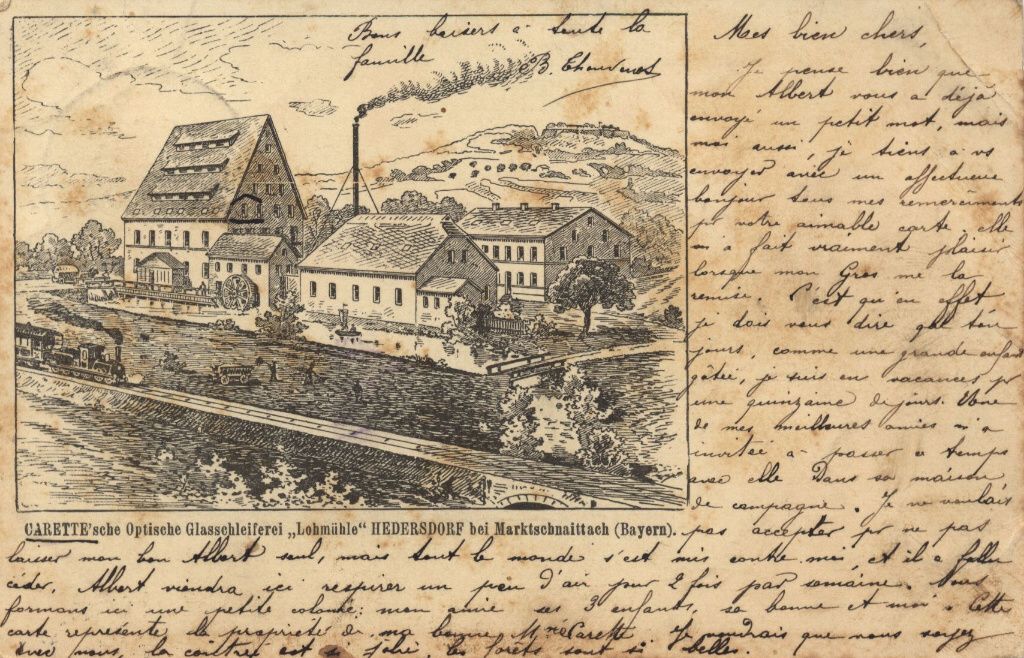 Bons baisers à toute la
famille
Mes bien chers,
Je pense bien que
mon Albert vous a déjà
envoyé un petit mot, mais
moi aussi, je tiens à vs
envoyer avec un affectueux
bonjour tous mes remerciments
pr votre aimable carte, elle
m'a fait vraiment plaisir
lorsque mon Gros me la
remise. C'est qu'en effet
je dois vous dire que tou
jours, comme une grande enfant
gâtée, je suis en vacances pr
une quinzaine de jours. Une
de mes meilleures amies m'a
invitée à passer ce temps
avec elle Dans sa maison
de campagne. Je ne voulais
pas accepter pr ne pas
CARETTE'sche Optische Glasschleiferei „Lohmühle“ HEDERSDORF bei Marktschnaittach (Bayern).
laisser mon bon Albert seul, mais tout le monde s'est mis contre moi, et il a fallu
céder. Albert viendra ici respirer un peu d'air pur 2 fois par semaine. Nous
formons ici une petite colonie: mon amie ses 3 enfants, sa bonne et moi. Cette
carte représente la propriété de ma bonne Mme Carette. Je voudrais que vous soyez
avec nous, la contrée est si jolie, les forêts sont si belles.